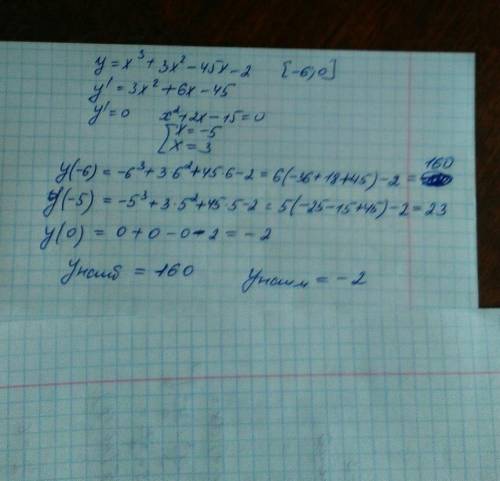 y = x³ + 3x² - 45x - 2 [-6; 0]
y' = 3x² + 6x - 45
y' = 0 x² + 2x - 15 = 0
[x = -5
x = 3
y(-6) = -6³ + 3·6² + 45·6 - 2 = 6(-36 + 18 + 45) - 2 = 160
y(-5) = -5³ + 3·5² + 45·5 - 2 = 5(-25 - 15 + 45) - 2 = 23
y(0) = 0 + 0 - 0 - 2 = -2
yнаиб = 160 yнаим = -2